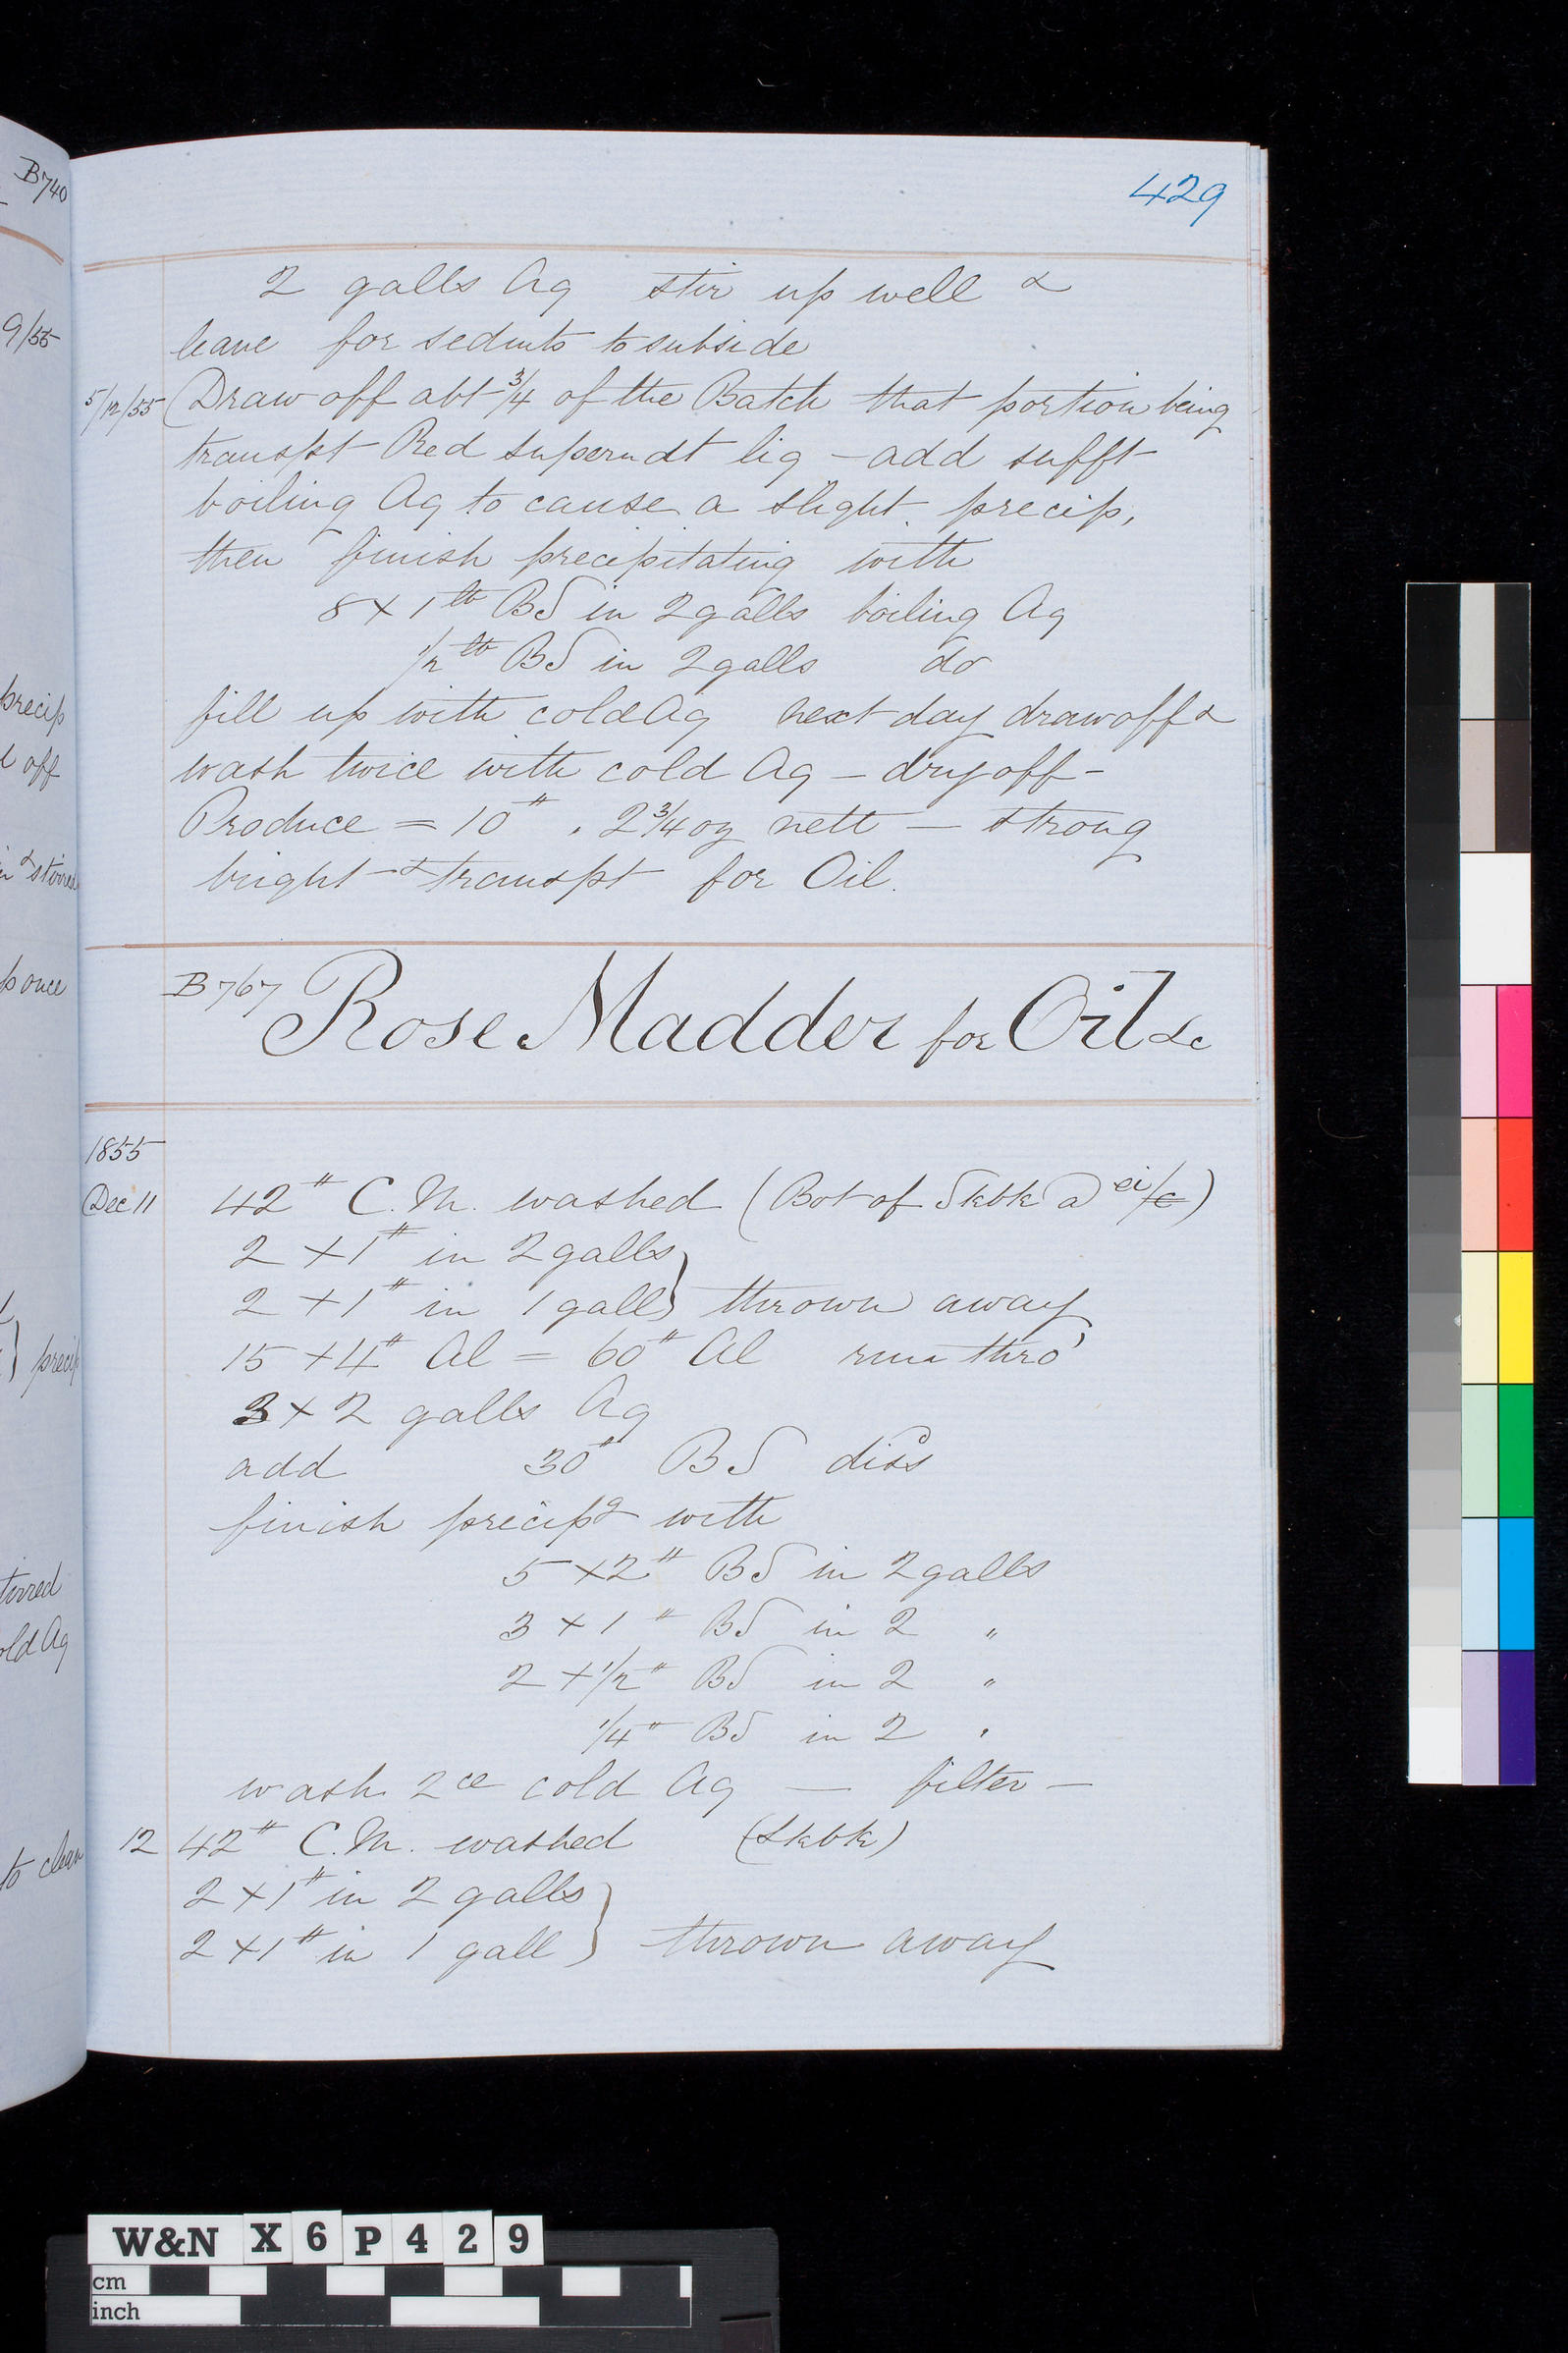 B740
9/55
precip
off
& stirred
p once
precip
tirred
old Aq
to clean
429
2 galls Aq stir up well &
leave for sedmts to subside
5/12/55 Draw off abt 3/4 of the Batch that portion being
transpt Red superndt liq - add sufft
boiling Aq to cause a slight precip,
then finish precipitating with
8 x 1 lb BS in 2 galls boiling Aq
1/2 lb BS in 2 galls do
fill up with cold Aq next day draw off &
wash twice with cold Aq - dry off -
Produce = 10# . 2 3/4 oz nett - strong
bright & transpt for Oil.
B767 Rose Madder for Oil &c
1855
Dec 11 42# C.M. washed (Bot of Skbk @ ei/c)
2 x 1# in 2 galls
2 x 1# in 1 gall } thrown away
15 x 4# Al = 60# Al run thro'
3 x 2 galls Aq
add 30# BS diss
finish precipg with
5 x 2# BS in 2 galls
3 x 1# BS in 2 "
2 x 1/2# BS in 2 "
1/4# BS in 2 "
wash 2ce cold Aq — filter —
12 42# C.M. washed (Skbk)
2 x 1# in 2 galls
2 x 1# in 1 gall } thrown away
W&N X 6 P 4 2 9
cm
inch